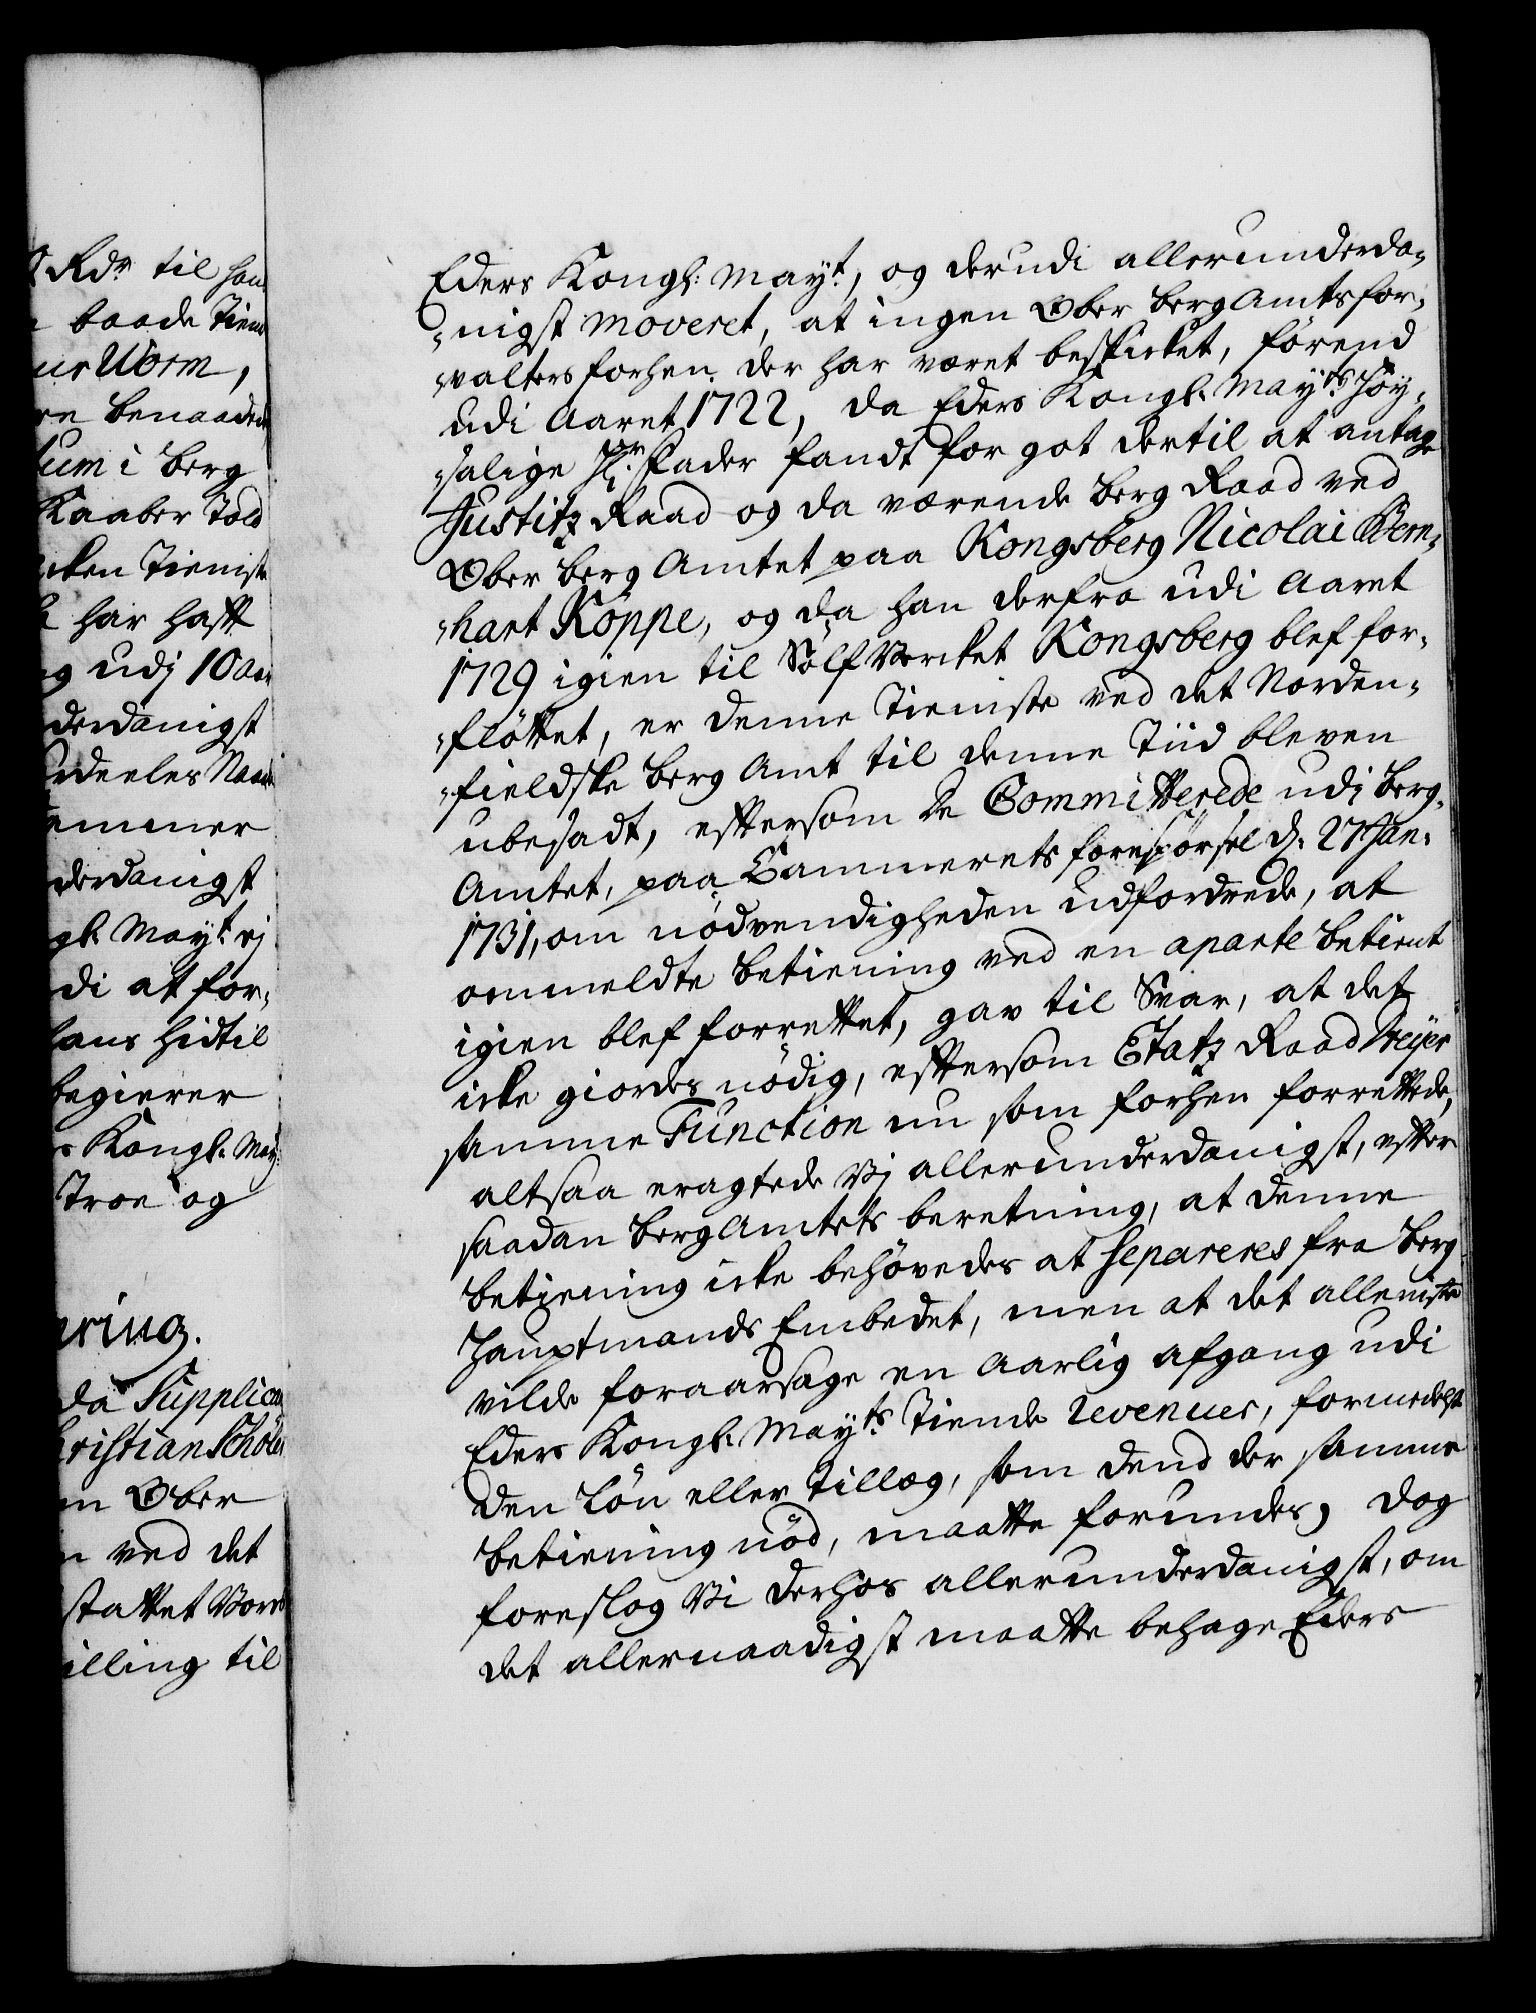 Rdr til han
baade Tien
ur Worm,
re benaadede
um i Berg
Kaaber Told
cken Tieniste
har hafft
og udj 10 Aar
derdanigst
rdeeles Naade
emmer
derdanigst
gl. Mayt. ej
di at for-
hans hidtil
begierer
s Kongl. May
Troe og
ering.
da Supplican
hristian Schöller
en Ober
n ved det
stattet Vorde
illing til
Eders Kongl: Mayt., og derudi allerunderda-
-nigst moveret, at ingen Ober Berg Amtsfor-
-valters forhen der har været beskicket, förend
udi Aaret 1722, da Eders Kongl. Mayts. Höy-
-salige Hr. Fader fandt for got dertil at antage
Justitz Raad og da værende Berg Raad ved
Ober Berg Amtet paa Kongsberg Nicolai Bern-
-hart Köppe, og da han derfra udi Aaret
1729 igien til Sölf Vercket Kongsberg blef for-
-flöttet, er denne Tieniste ved det Norden-
-fieldske Berg Amt til denne Tiid bleven
ubesadt, eftersom De Committerede udj Berg-
Amtet, paa Cammerets forespörsel d. 27 Jan:
1731, om nödvendigheden udfordrede, at
ommeldte betiening ved en aparte betient
igien blef forrettet, gav til Svar, at det
icke giordes nödig, eftersom Etatz Raad Meÿer
samme Function nu som forhen forrettede,
altsaa eragtede Vj allerunderdanigst, efter
saadan Berg Amtets beretning, at denne
betiening icke behövedes at separeres fra Berg
Hauptmands Embedet, men at det alleniste
vilde foraarsage en Aarlig afgang udi
Eders Kongl. Mayts. Tiende Revenuer, formedelst
den Lön eller Tillæg, som dend der samme
betiening nöd, maatte forundes, dog
foreslog Vi derhos allerunderdanigst, om
det allernaadigst maatte behage Eders